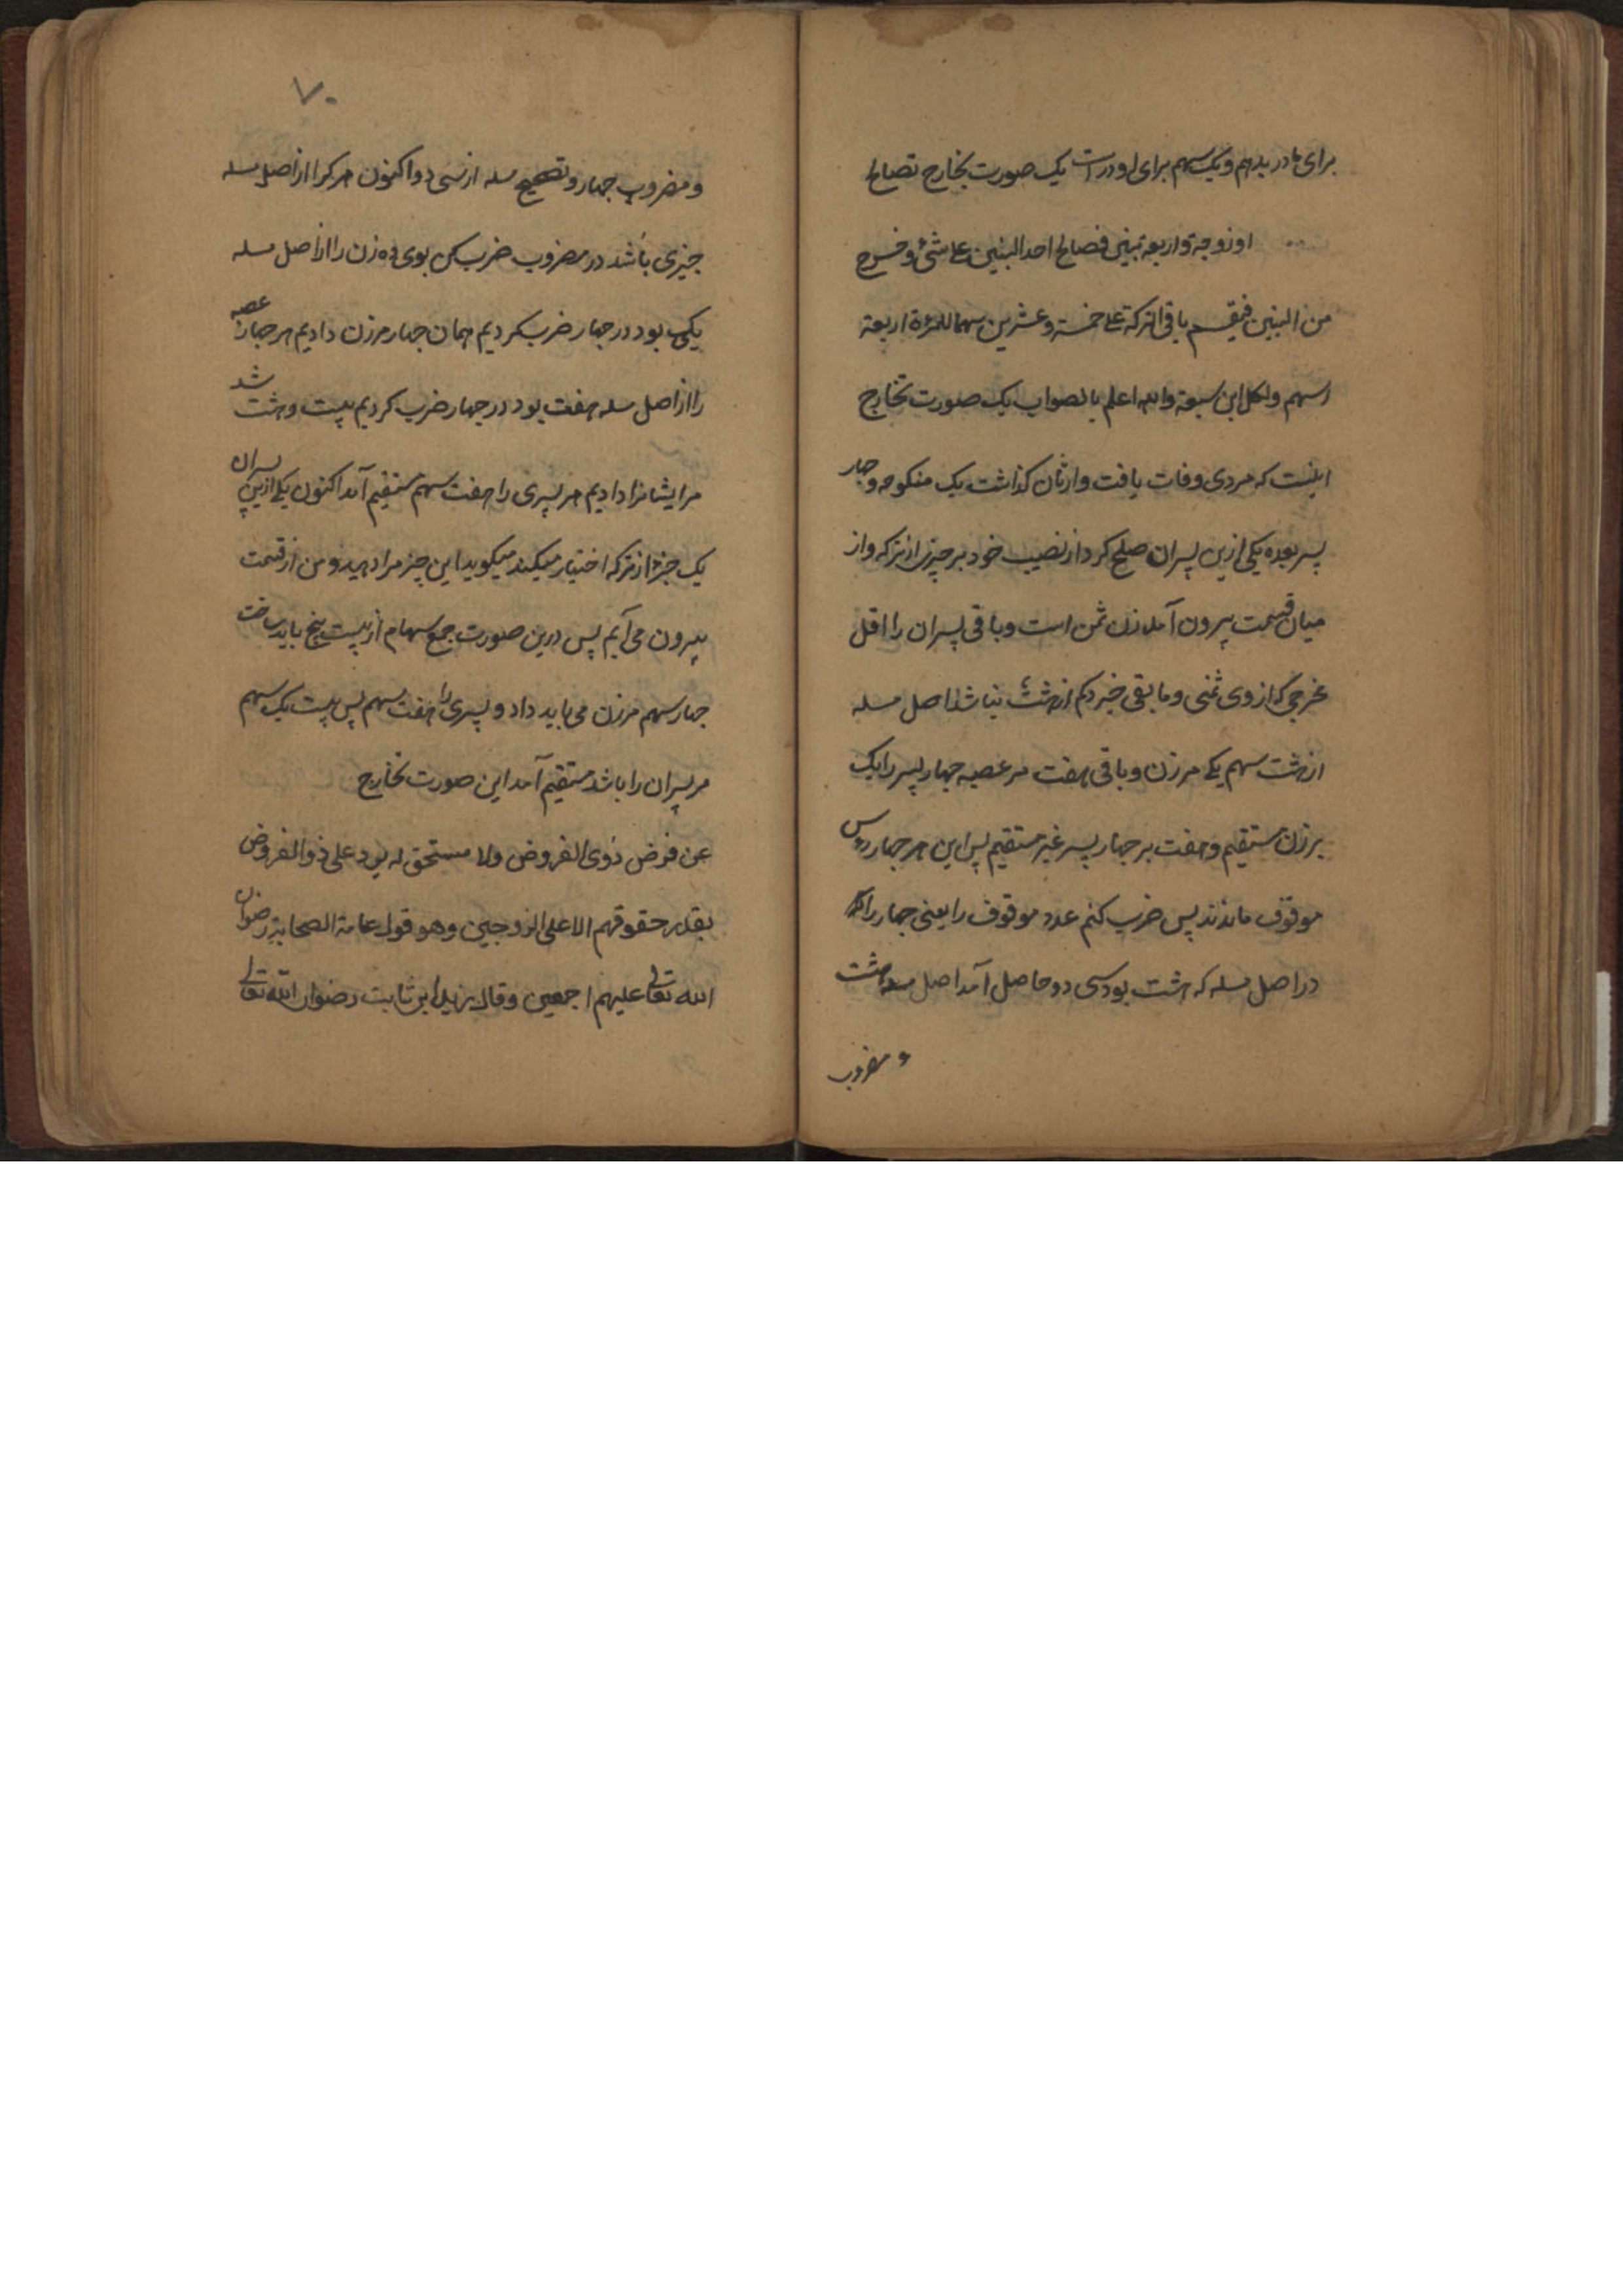 برای مادر بدهم و یک سهم برای او در است یک صورت تخارج تصالح
او زوجة و اربعة بنین فصالح احد البنین علی شئ و خرج
من البنین فیقسم باقی الترکة علی خمسة و عشرین سهما للمرءة اربعة
اسهم و لکل ابن سبعة والله اعلم بالصواب یک صورت تخارج
اینست که مردی وفات یافت وارثان کذاشت یک منکوحه و چهار
پسر بعده یکی ازین پسران صلح کرد از نصیب خود بر چیزی از ترکه و از
میان قسمت بیرون آمد زن ثمن است و باقی پسران را اقل
مخرجی که از وی ثمنی و ما بقی خیزد کم از هشت نباشد اصل مسله
از هشت سهم یکی مر زن و باقی هفت مر عصبه چهار پسر را یک
بر زن مستقیم و هفت بر چهار پسر غیر مستقیم پس این هر چهار روس
موقوف ماندند پس ضرب کنم عدد موقوف را یعنی چهار را
در اصل مسله که هشت بود سی دو حاصل آمد اصل مسله هشت
و مضروب
۷۰
و مضروب چهار و تصحیح مسله از سی دو اکنون هر کرا از اصل مسله
چیزی باشد در مضروب ضرب کن بوی ده زن را از اصل مسله
یکی بود در چهار ضرب کردیم همان چهار مر زن دادیم هر چهار عصبه
را از اصل مسله هفت بود در چهار ضرب کردیم بیست و هشت شد
مر ایشانرا دادیم هر پسری را هفت سهم مستقیم آمد اکنون یکی ازین پسران
یک جزء از ترکه اختیار میکند میکوید این چیز مرا دهید و من از قسمت
بیرون می آیم پس درین صورت جمع سهام از بیست پنج باید ساخت
چهار سهم مر زن می باید داد و پسری را هفت سهم پس بیست یک سهم
مر پسران را باشد مستقیم آمد این صورت تخارج
عن فرض ذوی الفروض ولا مستحق له یرد علی ذو الفروض
بقدر حقوقهم الا علی الزوجین وهو قول عامة الصحابة رضوان
الله تعالی علیهم اجمعین وقال زید ابن ثابت رضوان الله تعالی